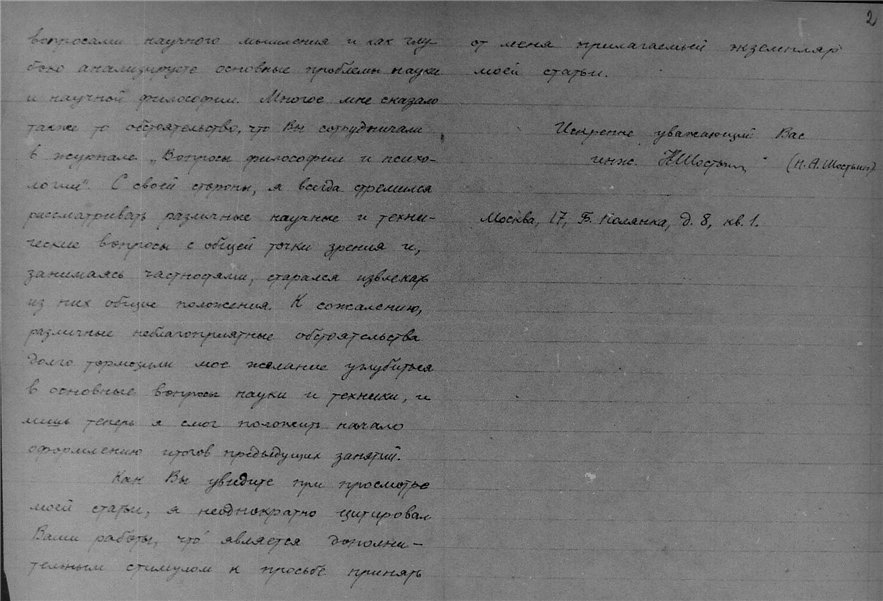 2
вопросами научного мышления и как глу-
боко анализируете основные проблемы науки
и научной философии. Многое мне сказало
также то обстоятельство, что Вы сотрудничали
в журнале „Вопросы философии и психо-
логии". С своей стороны, я всегда стремился
рассматривать различные научные и техни-
ческие вопросы с общей точки зрения и,
занимаясь частностями, старался извлекать
из них общие положения. К сожалению,
различные неблагоприятные обстоятельства
долго тормозили мое желание углубиться
в основные вопросы науки и техники, и
лишь теперь я смог положить начало
оформлению итогов предыдущих занятий.
Как Вы увидите при просмотре
моей статьи, я неоднократно цитировал
Ваши работы, что является дополни-
тельным стимулом к просьбе принять
от меня прилагаемый экземпляр
моей статьи.
Искренне уважающий Вас
инж. НШостьин (Н.А.Шостьин)
Москва, 17, Б. Полянка, д. 8, кв. 1.